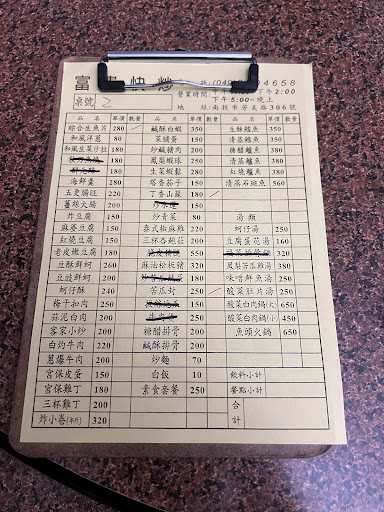 富 快炒
4658
營業時間: 下午2:00
下午5:00~晚上
地 址:南投市芳美路306號
桌號 2
品名 單價 數量 品名 單價 數量 品名 單價 數量
綜合生魚片 280 鹹酥白蝦 350 生酥鱈魚 350
和風洋蔥 80 菜脯蛋 150 清蒸鱈魚 380
和風生菜沙拉 180 炒鹹豬肉 200 糖醋鱸魚 380
180 鳳梨蝦球 250 清蒸鱸魚 380
180 生菜蝦鬆 250 紅燒鱸魚 380
海鮮羹 280 塔香茄子 150 清蒸石斑魚 560
五更腸旺 220 丁香山蘇 180
薑絲大腸 200 180
炸豆腐 150 炒青菜 80 湯類
麻婆豆腐 150 泰式椒麻雞 220 蚵仔湯 250
紅燒豆腐 150 三杯杏鮑菇 200 豆腐蛋花湯 160
老皮嫩豆腐 180 550 320
豆酥鮮蚵 260 麻油松板豬 320 鳳梨苦瓜雞湯 380
豆豉鮮蚵 200 200 味噌鮮魚湯 250
蚵仔酥 240 苦瓜封 250 酸菜肚片湯 250
梅干扣肉 250 250 酸菜白肉鍋(大) 650
蒜泥白肉 200 200 酸菜白肉鍋(小) 450
客家小炒 200 糖醋排骨 200 魚頭火鍋 650
白灼牛肉 220 鹹酥排骨 200
蔥爆牛肉 200 炒麵 70
宮保皮蛋 150 白飯 10 飲料小計
宮保雞丁 180 素食套餐 250 餐點小計
三杯雞丁 200 合
炸小卷(半斤) 320 計